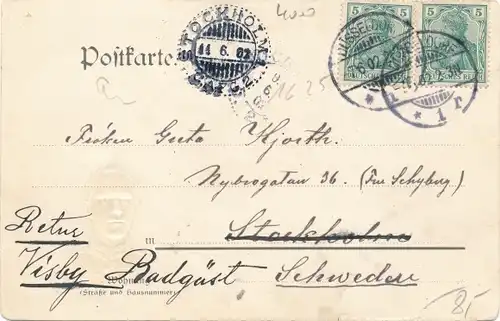 4000
5 5
Postkarte
STOCKHOLM
11. 6. 02
DÜSSELDORF
1625
* 1 r
Fröken Greta Kjorth.
Nybrogatan 36. (Fru Schyberg)
in Stockholm
Retur
Visby Badgäst Schweden
Wohnung
(Straße und Hausnummer)
8/-